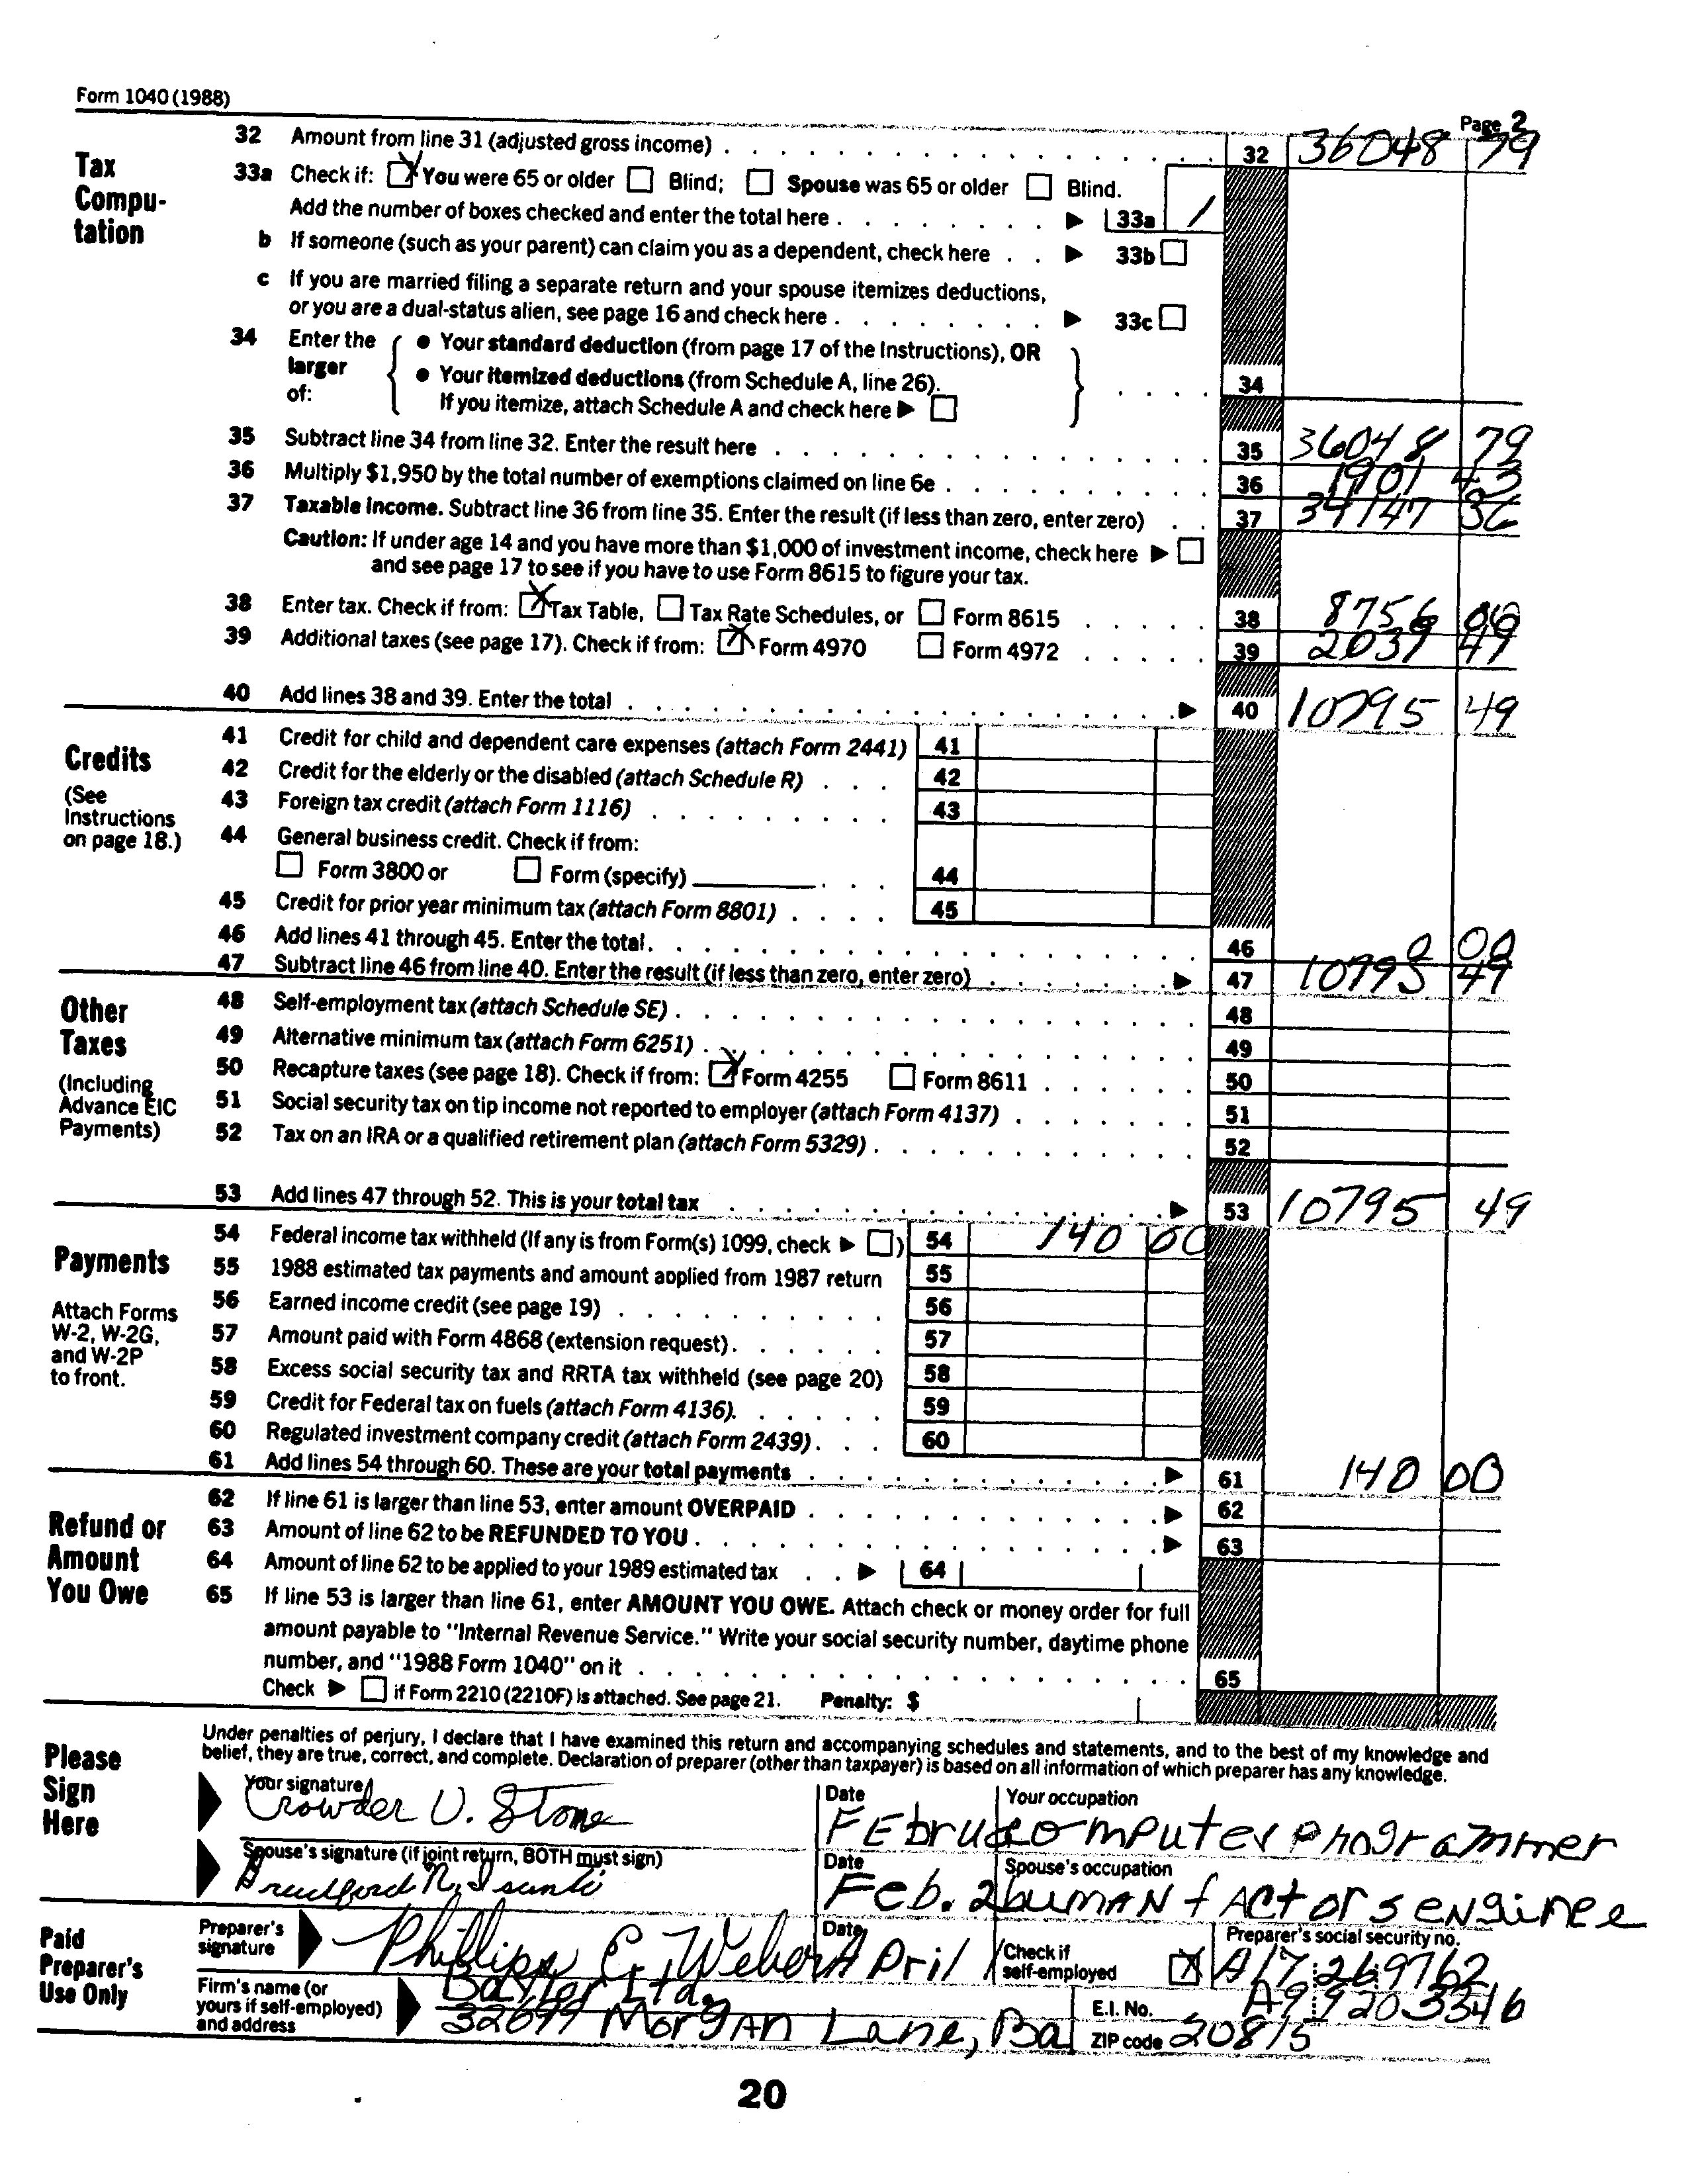 Form 1040 (1988)
Page 2
Tax Compu-
tation
32 Amount from line 31 (adjusted gross income) 32 36048 79
33a Check if: X You were 65 or older Blind; Spouse was 65 or older Blind.
Add the number of boxes checked and enter the total here 33a 1
b If someone (such as your parent) can claim you as a dependent, check here 33b
c If you are married filing a separate return and your spouse itemizes deductions,
or you are a dual-status alien, see page 16 and check here 33c
34 Enter the larger of:
• Your standard deduction (from page 17 of the Instructions), OR
• Your itemized deductions (from Schedule A, line 26).
If you itemize, attach Schedule A and check here 34
35 Subtract line 34 from line 32. Enter the result here 35 36048 79
36 Multiply $1,950 by the total number of exemptions claimed on line 6e 36 1901 43
37 Taxable income. Subtract line 36 from line 35. Enter the result (if less than zero, enter zero) 37 34147 36
Caution: If under age 14 and you have more than $1,000 of investment income, check here
and see page 17 to see if you have to use Form 8615 to figure your tax.
38 Enter tax. Check if from: X Tax Table, Tax Rate Schedules, or Form 8615 38 8756 00
39 Additional taxes (see page 17). Check if from: X Form 4970 Form 4972 39 2039 49
40 Add lines 38 and 39. Enter the total 40 10795 49
Credits
(See
Instructions
on page 18.)
41 Credit for child and dependent care expenses (attach Form 2441) 41
42 Credit for the elderly or the disabled (attach Schedule R) 42
43 Foreign tax credit (attach Form 1116) 43
44 General business credit. Check if from:
Form 3800 or Form (specify) 44
45 Credit for prior year minimum tax (attach Form 8801) 45
46 Add lines 41 through 45. Enter the total. 46 0 00
47 Subtract line 46 from line 40. Enter the result (if less than zero, enter zero) 47 10795 49
Other
Taxes
(Including
Advance EIC
Payments)
48 Self-employment tax (attach Schedule SE) 48
49 Alternative minimum tax (attach Form 6251) 49
50 Recapture taxes (see page 18). Check if from: X Form 4255 Form 8611 50
51 Social security tax on tip income not reported to employer (attach Form 4137) 51
52 Tax on an IRA or a qualified retirement plan (attach Form 5329) 52
53 Add lines 47 through 52. This is your total tax 53 10795 49
Payments
Attach Forms
W-2, W-2G,
and W-2P
to front.
54 Federal income tax withheld (If any is from Form(s) 1099, check ) 54 140 00
55 1988 estimated tax payments and amount applied from 1987 return 55
56 Earned income credit (see page 19) 56
57 Amount paid with Form 4868 (extension request) 57
58 Excess social security tax and RRTA tax withheld (see page 20) 58
59 Credit for Federal tax on fuels (attach Form 4136) 59
60 Regulated investment company credit (attach Form 2439) 60
61 Add lines 54 through 60. These are your total payments 61 140 00
Refund or
Amount
You Owe
62 If line 61 is larger than line 53, enter amount OVERPAID 62
63 Amount of line 62 to be REFUNDED TO YOU 63
64 Amount of line 62 to be applied to your 1989 estimated tax 64
65 If line 53 is larger than line 61, enter AMOUNT YOU OWE. Attach check or money order for full
amount payable to "Internal Revenue Service." Write your social security number, daytime phone
number, and "1988 Form 1040" on it 65
Check if Form 2210 (2210F) is attached. See page 21. Penalty: $
Please
Sign
Here
Under penalties of perjury, I declare that I have examined this return and accompanying schedules and statements, and to the best of my knowledge and
belief, they are true, correct, and complete. Declaration of preparer (other than taxpayer) is based on all information of which preparer has any knowledge.
Your signature Crowder V. Stone Date FEbrua Your occupation computer programmer
Spouse's signature (if joint return, BOTH must sign) Date Feb. 2 Spouse's occupation human fActors enginee
Paid
Preparer's
Use Only
Preparer's
signature Phillipp C. Weber Date April 1 Check if
self-employed X Preparer's social security no. A17 269762
Firm's name (or
yours if self-employed)
and address Baxter Ltd. E.I. No. A9 9203346
32699 Morgan Lane, Bal ZIP code 20815
20